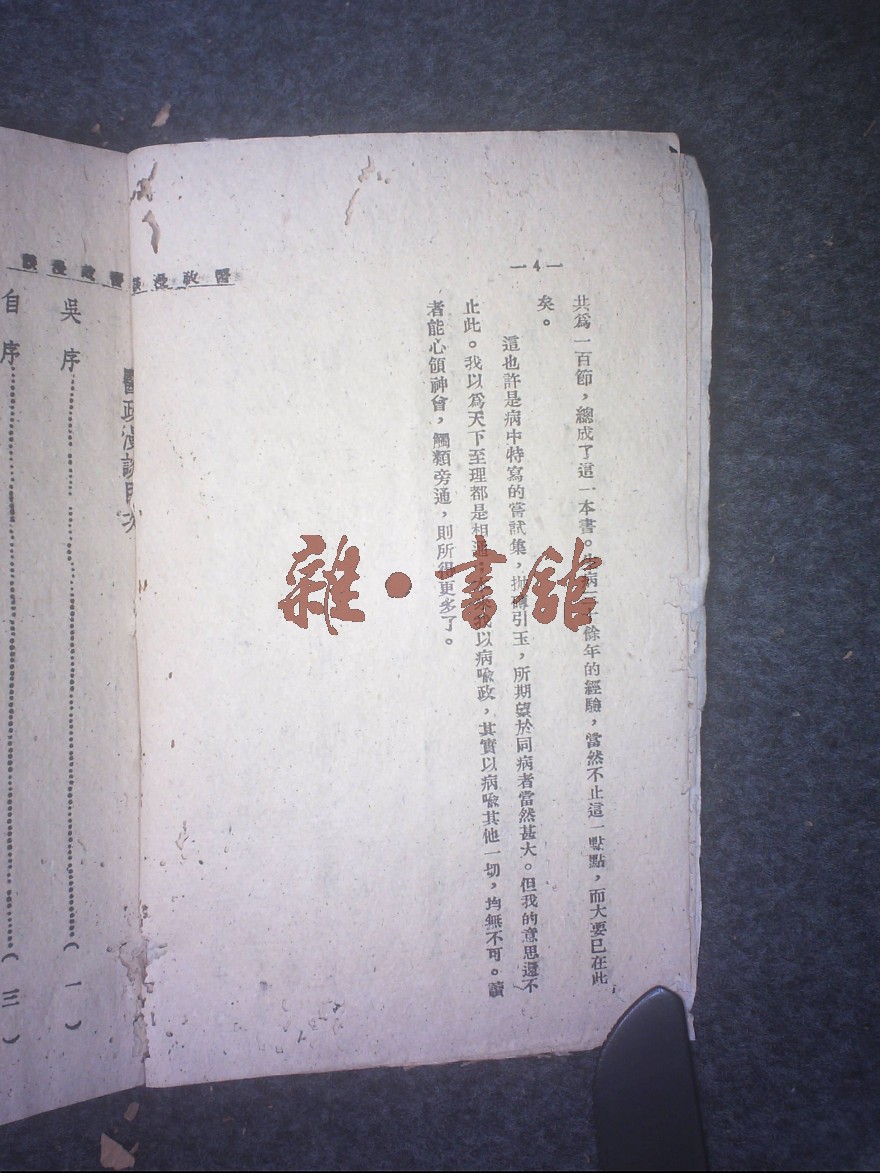 一4一
共爲一百節，總成了這一本書。病餘年的經驗，當然不止這一點點，而大要已在此
矣。
這也許是病中特寫的嘗試集，拋磚引玉，所期望於同病者當然甚大。但我的意思還不
止此。我以爲天下至理都是相通我以病喩政，其實以病喩其他一切，均無不可。讀
者能心領神會，觸類旁通，則所得更多了。
醫政漫談
醫政漫談
醫政漫談目次
吳序（一）
自序（三）
雜·書館